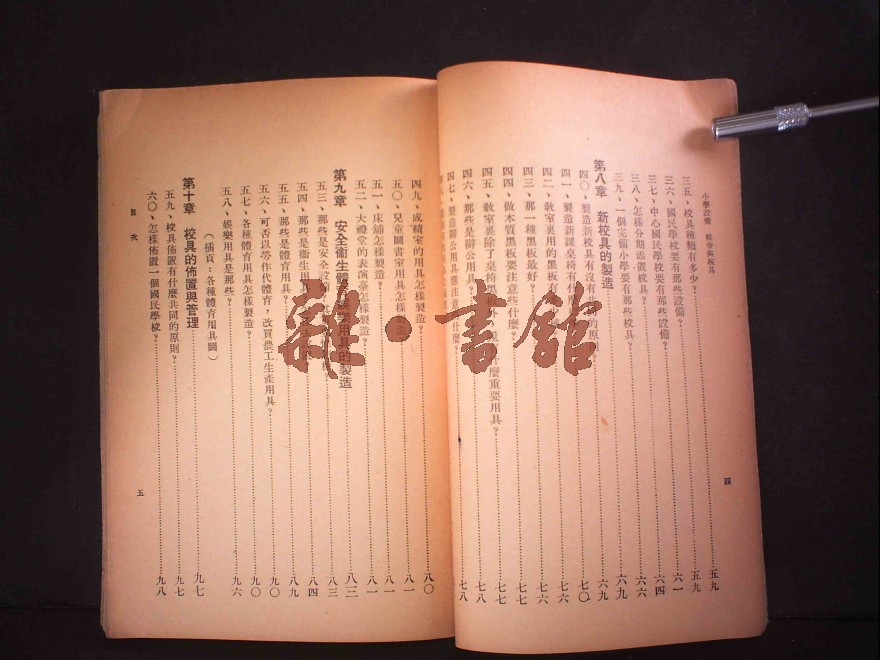 小學設備　校舍與校具
三五、校具種類有多少？……五九
三六、國民學校要有那些設備？……五九
三七、中心國民學校要有那些設備？……六一
三八、怎樣分期添置校具？……六四
三九、一個完備小學要有那些校具？……六九
第八章　新校具的製造……六九
四〇、製造新校具有沒有　的原　？……七〇
四一、製造新課桌椅有什麼　？……七六
四二、教室裏用的黑板有　？……七六
四三、那一種黑板最好？……七七
四四、做木質黑板要注意些什麼？……七七
四五、教室裏除了桌椅黑板外，　什麼重要用具？……七七
四六、那些是辦公用具？……七八
四七、製造辦公用具應注意　什麼？……七八
四
四九、成績室的用具怎樣製造？……八〇
五〇、兒童圖書室用具怎樣製造？……八一
五一、床舖怎樣製造？……八一
五二、大禮堂的表演臺怎樣製造？……八一
第九章　安全衞生體育娛樂用具的製造……八三
五三、那些是安全設備　？……八三
五四、那些是衞生用具？……八四
五五、那些是體育用具？……八九
五六、可否以勞作代體育，改買農工生產用具？……九〇
五七、各種體育用具怎樣製造？……九〇
五八、娛樂用具是那些？……九六
（插頁：各種體育用具圖）
第十章　校具的佈置與管理……九七
五九、校具佈置有什麼共同的原則？……九七
六〇、怎樣佈置一個國民學校？……九八
目次
五
雜・書館